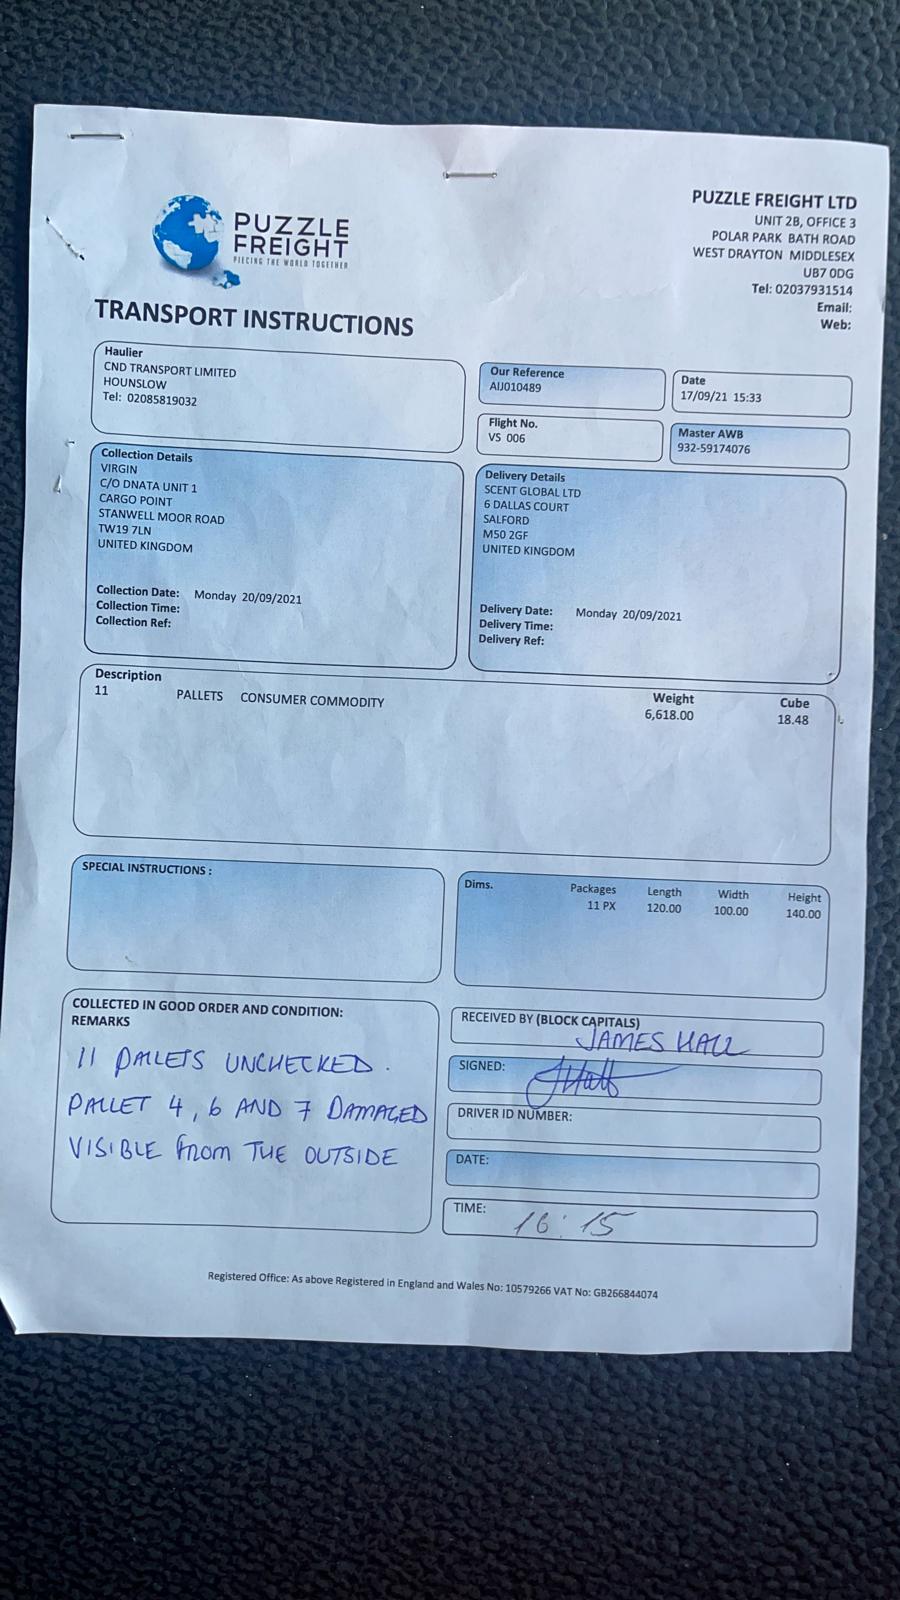 PUZZLE
FREIGHT
PIECING THE WORLD TOGETHER
PUZZLE FREIGHT LTD
UNIT 2B, OFFICE 3
POLAR PARK BATH ROAD
WEST DRAYTON MIDDLESEX
UB7 0DG
Tel: 02037931514
Email:
Web:
TRANSPORT INSTRUCTIONS
Haulier
CND TRANSPORT LIMITED
HOUNSLOW
Tel: 02085819032
Our Reference
AIJ010489
Date
17/09/21 15:33
Flight No.
VS 006
Master AWB
932-59174076
Collection Details
VIRGIN
C/O DNATA UNIT 1
CARGO POINT
STANWELL MOOR ROAD
TW19 7LN
UNITED KINGDOM
Collection Date: Monday 20/09/2021
Collection Time:
Collection Ref:
Delivery Details
SCENT GLOBAL LTD
6 DALLAS COURT
SALFORD
M50 2GF
UNITED KINGDOM
Delivery Date: Monday 20/09/2021
Delivery Time:
Delivery Ref:
Description Weight Cube
11 PALLETS CONSUMER COMMODITY 6,618.00 18.48
SPECIAL INSTRUCTIONS :
Dims. Packages Length Width Height
11 PX 120.00 100.00 140.00
COLLECTED IN GOOD ORDER AND CONDITION:
REMARKS
11 PALLETS UNCHECKED.
PALLET 4, 6 AND 7 DAMAGED
VISIBLE From THE OUTSIDE
RECEIVED BY (BLOCK CAPITALS)
JAMES HALL
SIGNED:
JHall
DRIVER ID NUMBER:
DATE:
TIME: 16:15
Registered Office: As above Registered in England and Wales No: 10579266 VAT No: GB266844074